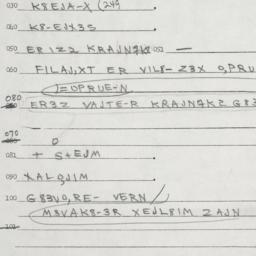 030 K8EJA-X (249
040 K8-EJX3S
050 ER1ZZ KRAJN9K8 052 —
060 FILAJ,XT ER VIL8-Z3X 0,PRU
J=OPRUE-N
080 ER3Z VAJTE-R KRAJN9KZ G83
070
O
081 + S+EJM
090 XAL9JIM
100 G83V0,RE- VERN /
M3VAK8-3R XEJL8IM ZAJN
101